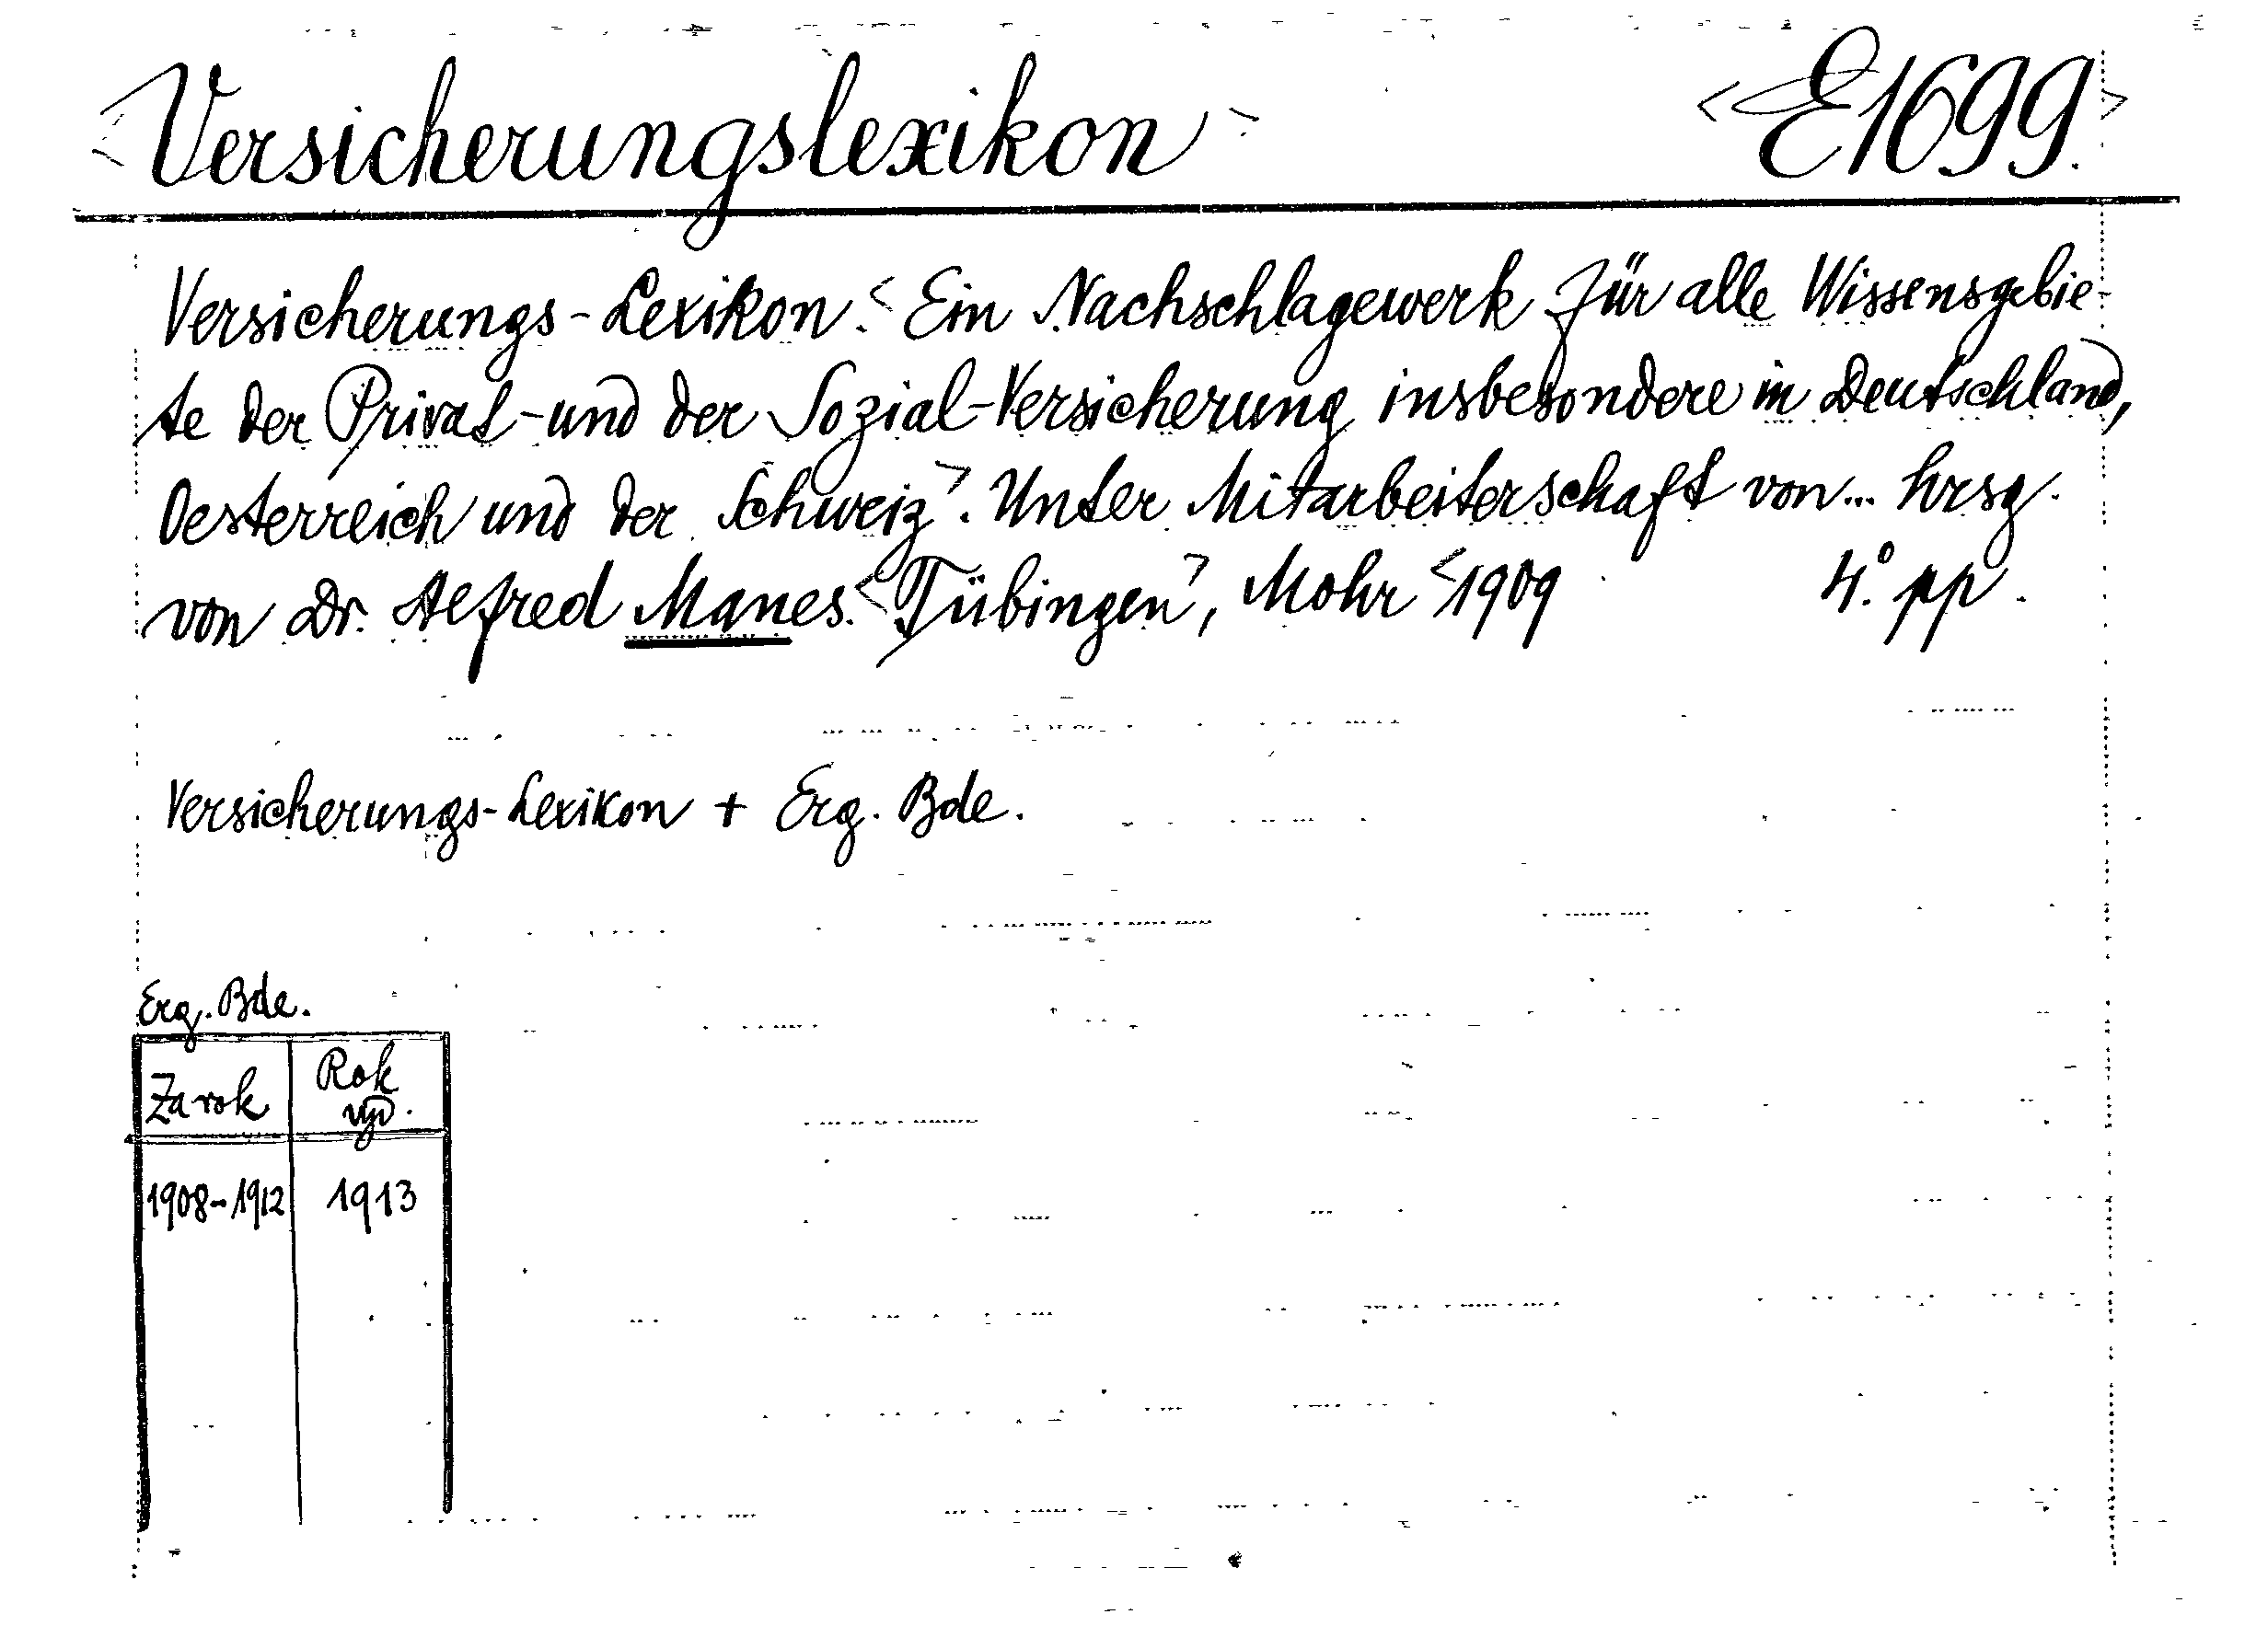 <Versicherungslexikon> <E1699.>
Versicherungs-Lexikon.<Ein Nachschlagewerk für alle Wissensgebie-
te der Privat- und der Sozial-Versicherung insbesondere in Deutschland,
Oesterreich und der Schweiz>. Unter Mitarbeiterschaft von... hrsg.
von Dr. Alfred Manes. <Tübingen>, Mohr <1909 4.° pp.
Versicherungs-Lexikon + Erg. Bde.
Erg. Bde.
Za rok Rok vyd.
1908-1912 1913